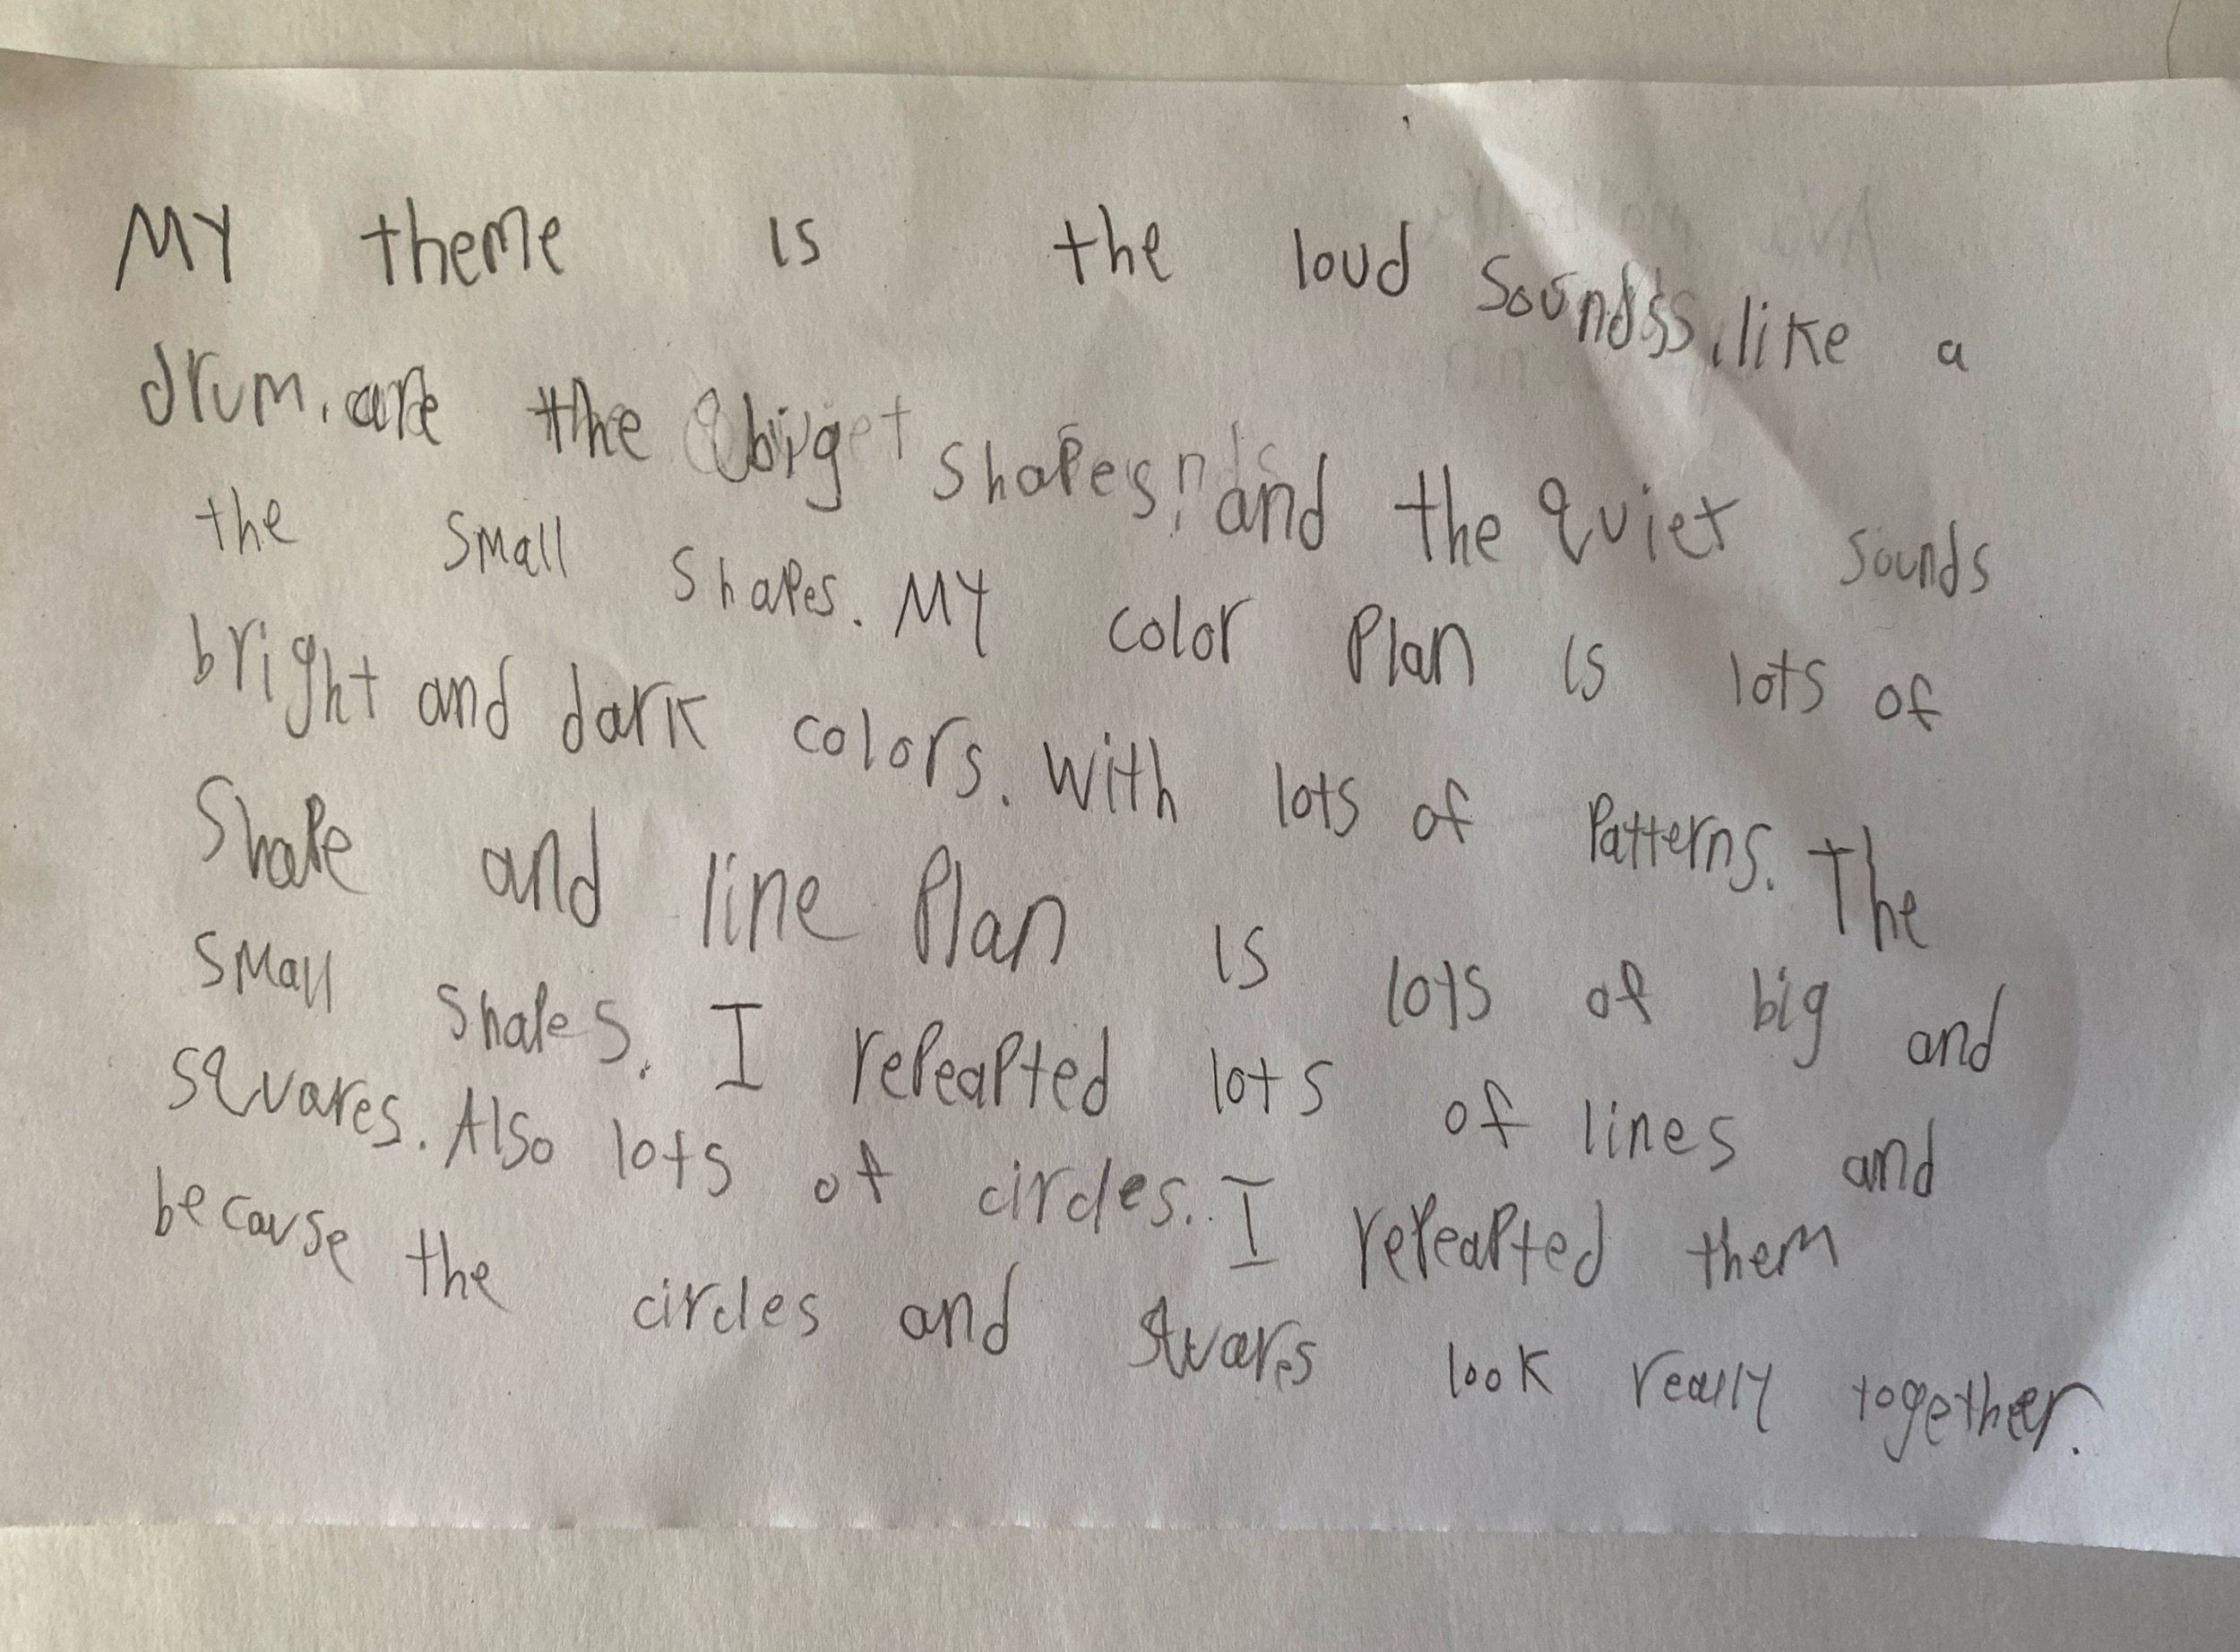 My theme is the loud sounds, like a
drum, are the big shapes, and the quiet sounds
the small shapes. My color plan is lots of
bright and dark colors. With lots of patterns. The
Shape and line plan is lots of big and
small shapes. I repeapted lots of lines and
squares. Also lots of circles. I repeapted them
because the circles and squares look really together.